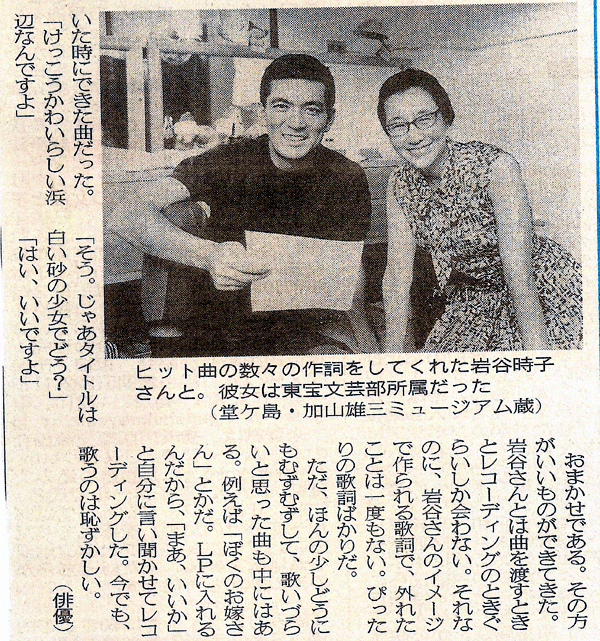 いた時にできた曲だった。
「けっこうかわいらしい浜
辺なんですよ」
「そう。じゃあタイトルは
白い砂の少女でどう？」
「はい、いいですよ」
ヒット曲の数々の作詞をしてくれた岩谷時子
さんと。彼女は東宝文芸部所属だった
（堂ケ島・加山雄三ミュージアム蔵）
おまかせである。その方
がいいものができてきた。
岩谷さんとは曲を渡すとき
とレコーディングのときぐ
らいしか会わない。それな
のに、岩谷さんのイメージ
で作られる歌詞で、外れた
ことは一度もない。ぴった
りの歌詞ばかりだ。
ただ、ほんの少しどうに
もむずむずして、歌いづら
いと思った曲も中にはあ
る。例えば「ぼくのお嫁さ
ん」とかだ。ＬＰに入れる
んだから、「まあ、いいか」
と自分に言い聞かせてレコ
ーディングした。今でも、
歌うのは恥ずかしい。
（俳優）